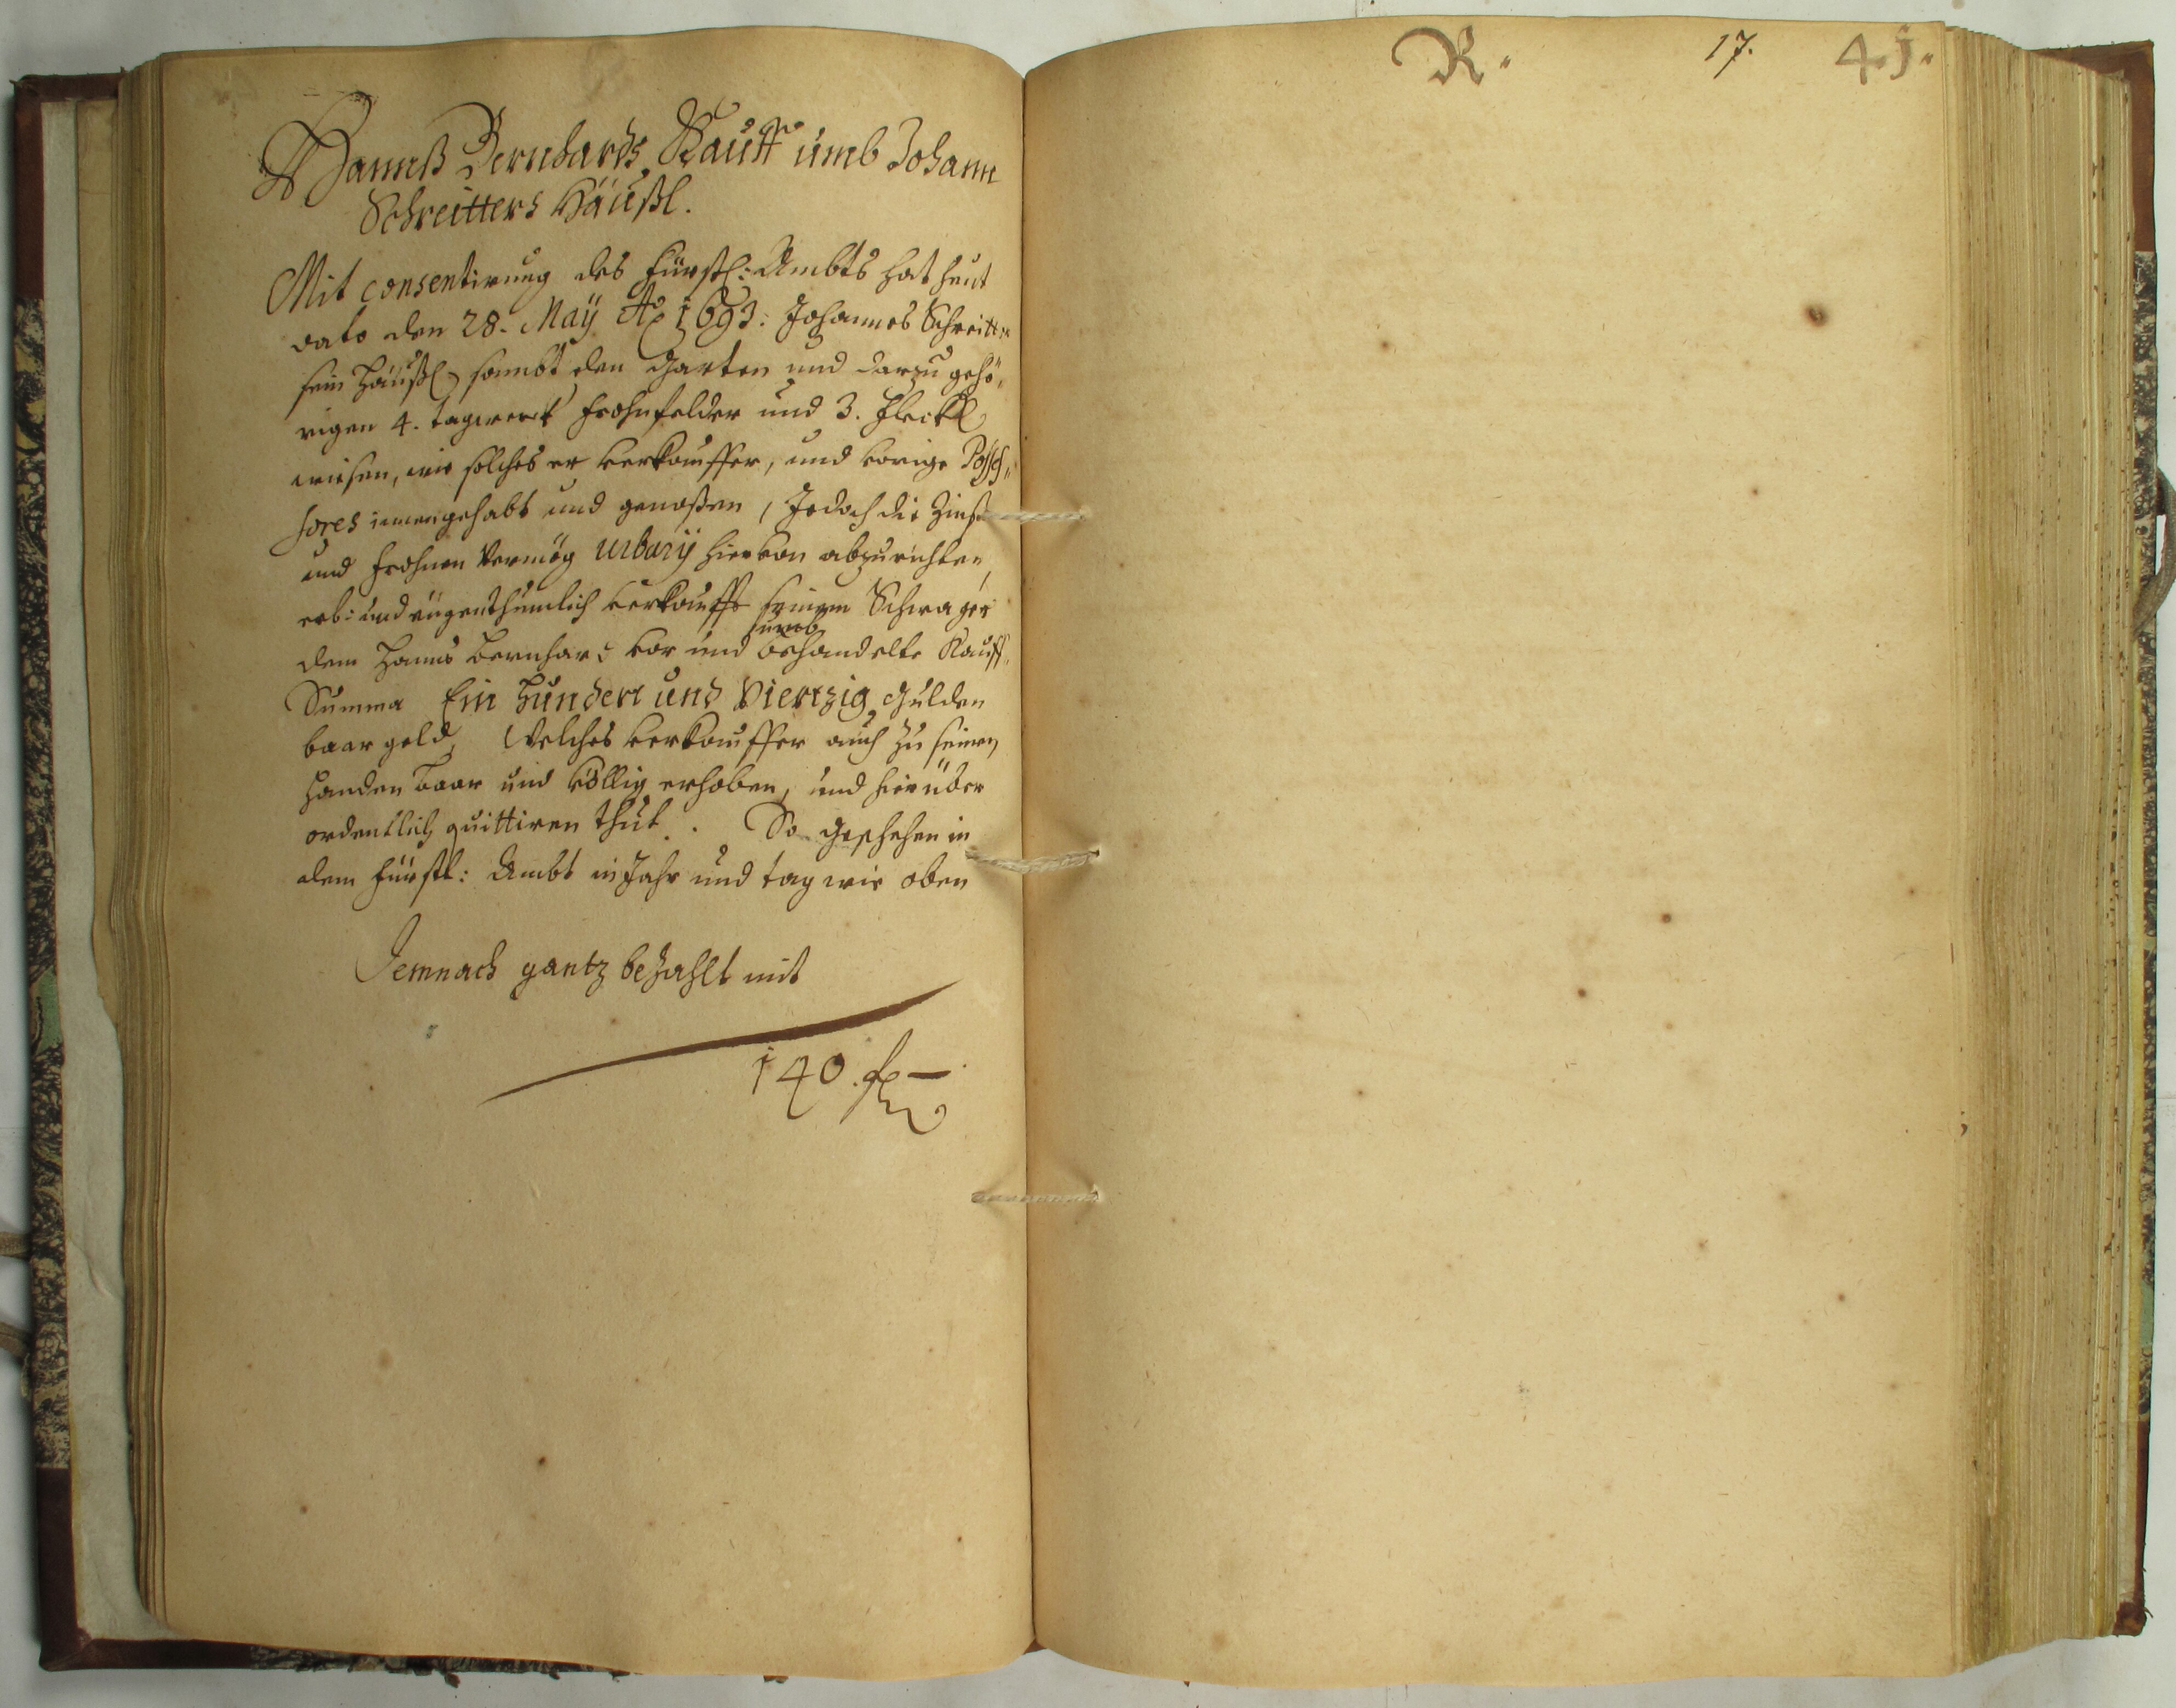 Hannß Bernhards Kauff umb Johann
Schreitters Häußl.
Mit consentirung des Fürstl: Ambts hat heut
dato den 28. Maÿ Aō 1693. Johannes Schreitter
sein Häußl sambt den Garten und darzu gehö„
rigen 4. tagwerck Frohnfelder und 3. Fleckl
wiesen, wie solches er Verkauffer, und Vorige Posses„
sores innengehabt und genoßen, Jedoch die Zinß
und Frohnen Vermög Urbarÿ hiervon abzurichten,
erb: und eügenthumlich Verkaufft seinem Schwager
dem Hanns Bernhard vor und umb behandelte Kauff„
Summa Ein Hundert und Viertzig Gulden
baar geld, Welches Verkauffer auch zu seinen
Handen baar und Völlig erhoben, und hierüber
ordentlich quittiren thut. So geschehen in
dem Fürstl: Ambt im Jahr und tag wie oben
Demnach gantz bezahlt mit
140. fl —
R. 17. 45.